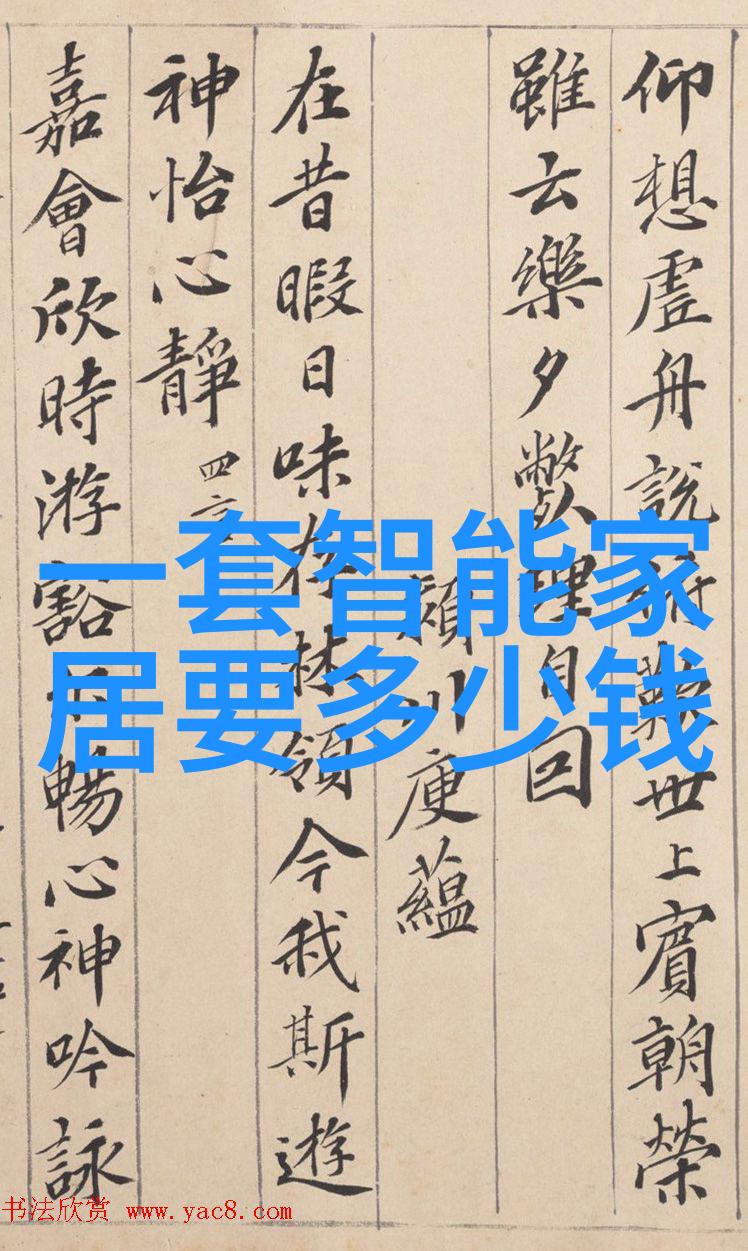 仰想虛舟說俯歎世上賓朝榮
雖云樂夕斃理自回
潁川庾蘊
在昔暇日味存林領今我斯遊
神怡心靜 四言
嘉會欣時游豁尒暢心神吟詠
一套智能家
居要多少钱
书法欣赏 www.yac8.com